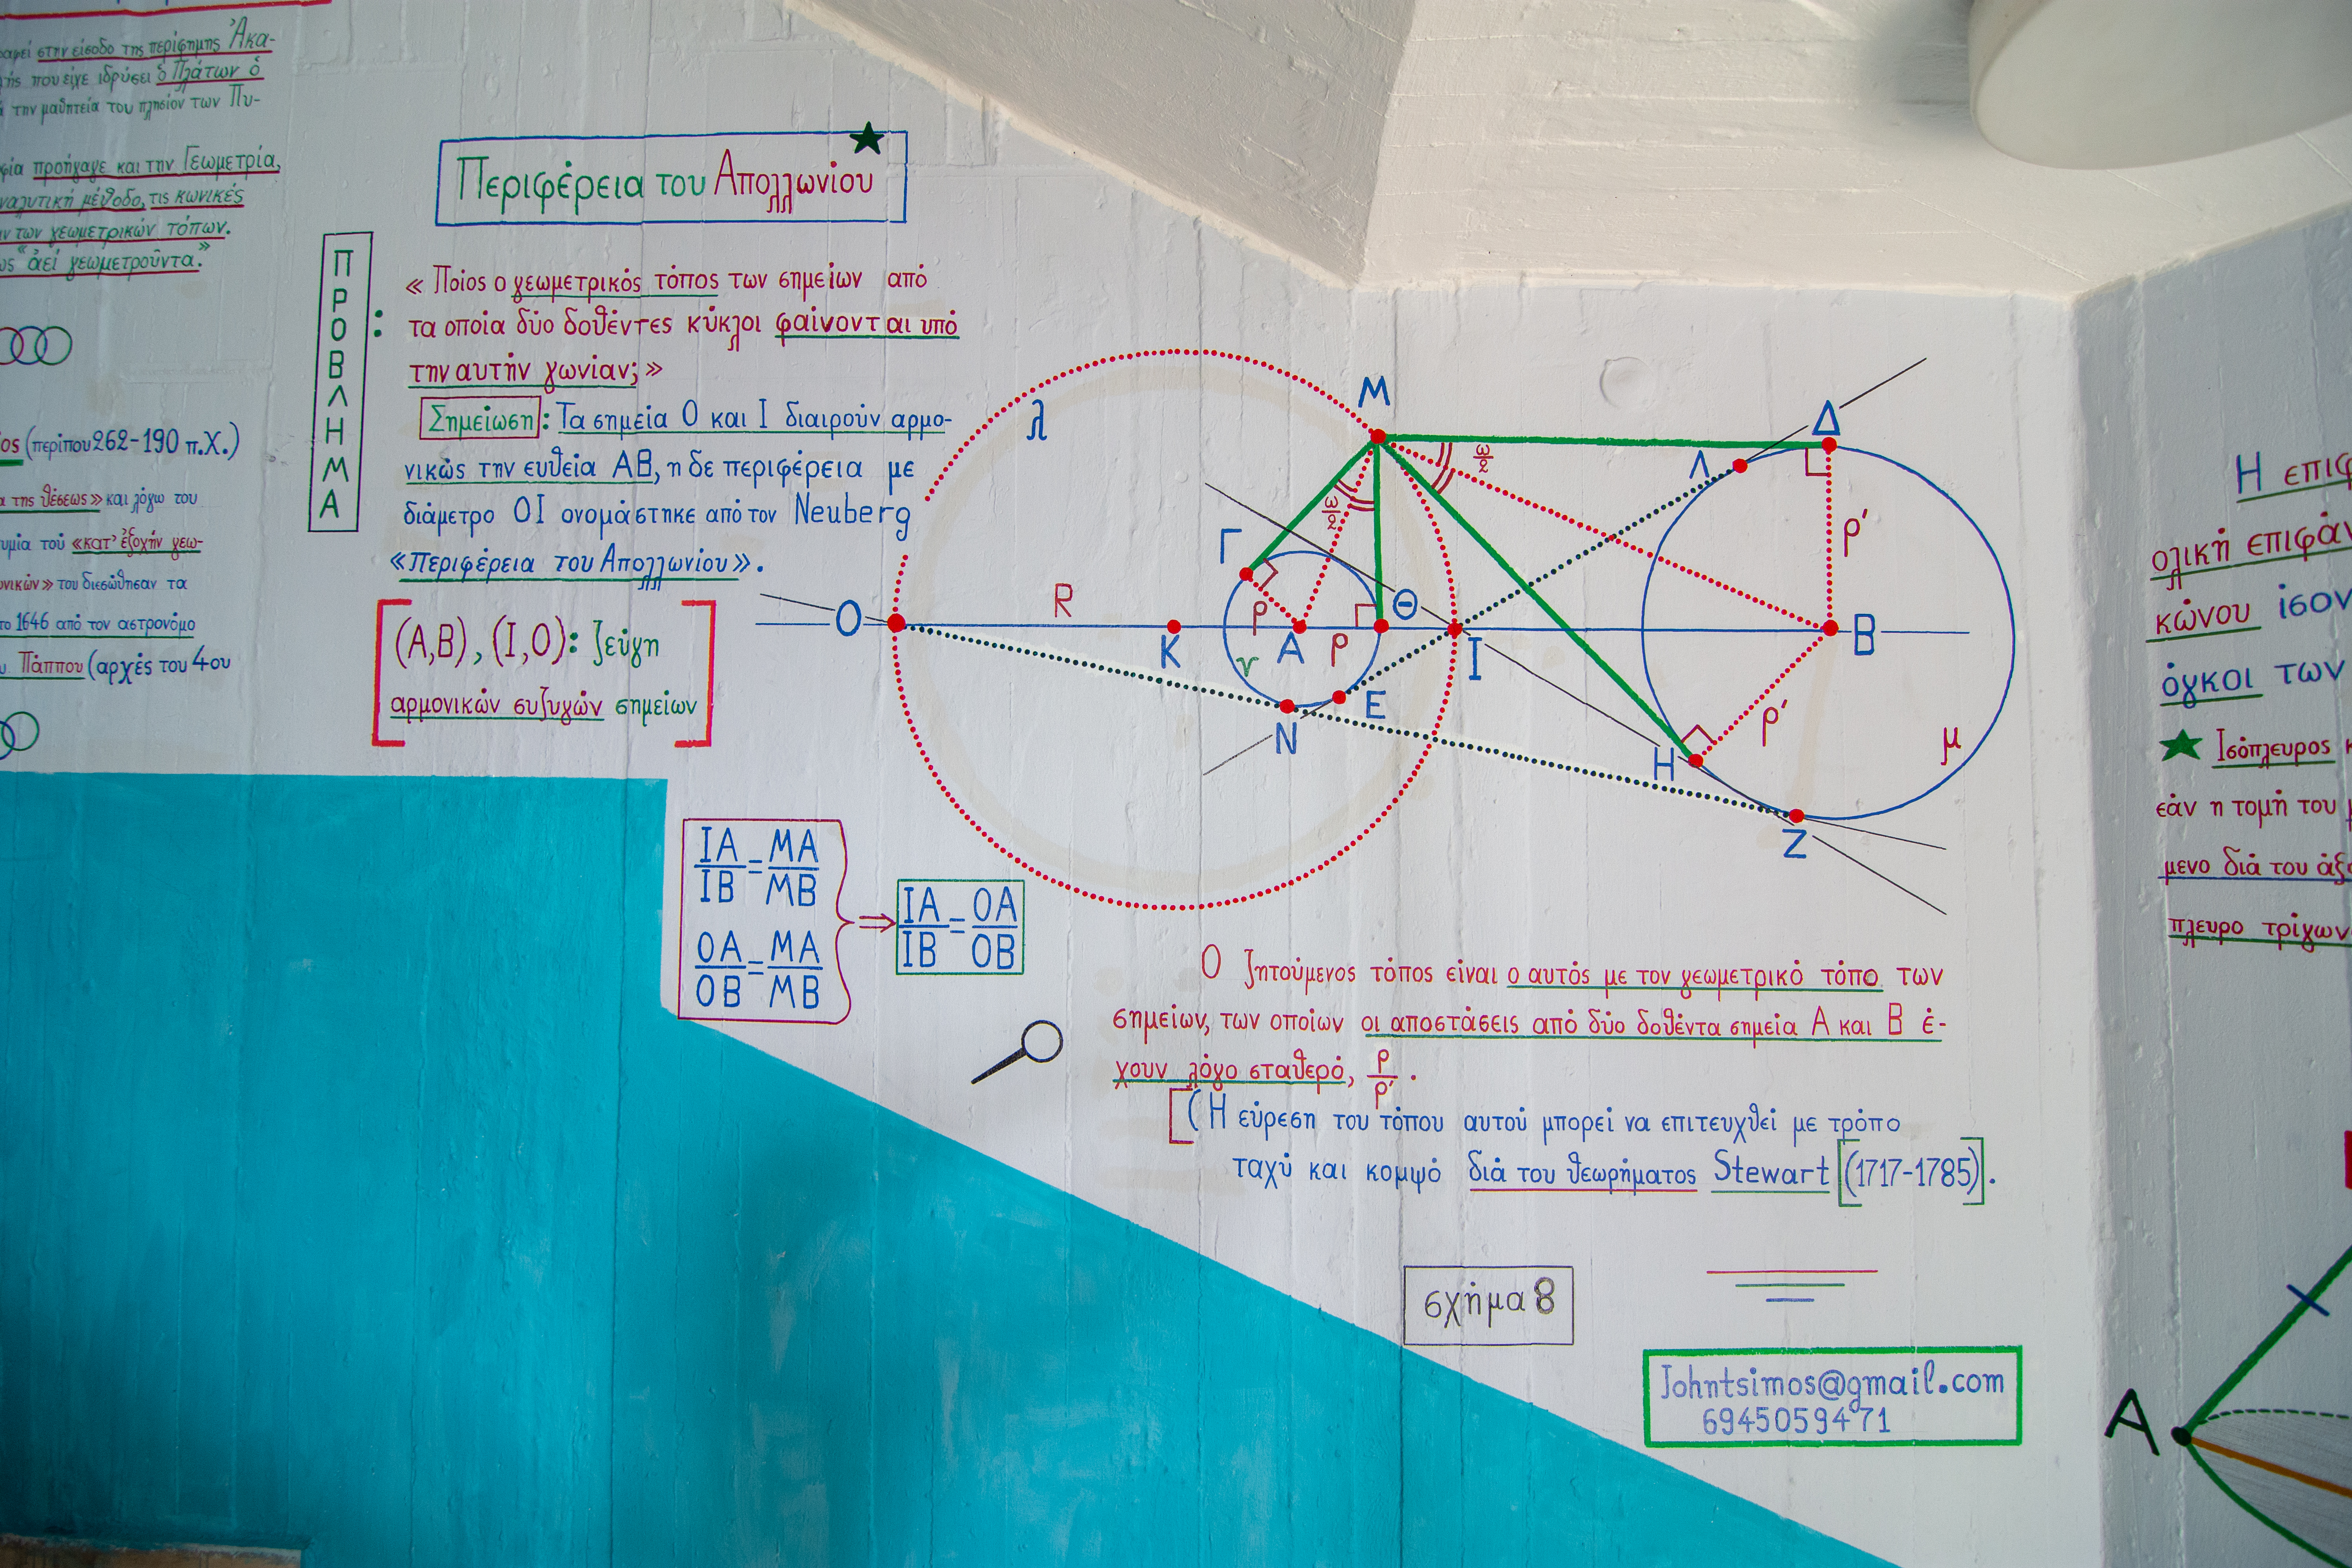 στην είσοδο της περίφημης Ἀκα-
που είχε ιδρύσει ὁ Πλάτων ὁ
την μαθητεία του πλησίον των Πυ-
προήγαγε και την Γεωμετρία,
μέθοδο, τις κωνικές
των γεωμετρικών τόπων.
«ἀεί γεωμετροῦντα.»
(περίπου 262-190 π.Χ.)
της θέσεως» και λόγω του
τοῦ «κατ' ἐξοχήν γεω-
του διεσώθησαν τα
το 1646 από τον αστρονόμο
Πάππου (αρχές του 4ου
Περιφέρεια του Απολλωνίου
ΠΡΟΒΛΗΜΑ:
« Ποίος ο γεωμετρικός τόπος των σημείων από
τα οποία δύο δοθέντες κύκλοι φαίνονται υπό
την αυτήν γωνίαν; »
Σημείωση: Τα σημεία Ο και Ι διαιρούν αρμο-
νικώς την ευθεία ΑΒ, η δε περιφέρεια με
διάμετρο ΟΙ ονομάστηκε από τον Neuberg
«Περιφέρεια του Απολλωνίου».
(Α,Β), (Ι,Ο): ζεύγη
αρμονικών συζυγών σημείων
λ
Μ
Δ
Λ
ω/2
ω/2
Γ
ρ'
Θ
R
ρ
Ο
Κ
Α
ρ
Ι
Β
γ
Ε
Ν
ρ'
Η
μ
Ζ
ΙΑ/ΙΒ = ΜΑ/ΜΒ
ΟΑ/ΟΒ = ΜΑ/ΜΒ
⇒ ΙΑ/ΙΒ = ΟΑ/ΟΒ
Ο ζητούμενος τόπος είναι ο αυτός με τον γεωμετρικό τόπο των
σημείων, των οποίων οι αποστάσεις από δύο δοθέντα σημεία Α και Β έ-
χουν λόγο σταθερό, ρ/ρ' .
[(Η εύρεση του τόπου αυτού μπορεί να επιτευχθεί με τρόπο
ταχύ και κομψό διά του θεωρήματος Stewart [(1717-1785)].
σχήμα 8
Johntsimos@gmail.com
6945059471
Η
ολική
κώνου ίσον
όγκοι των
Ισόπλευρος
εάν η τομή του
μενο διά του
πλευρο
Α